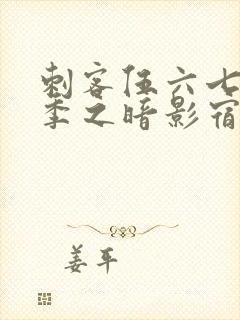 刺客伍六七
季之暗影宿
姜平